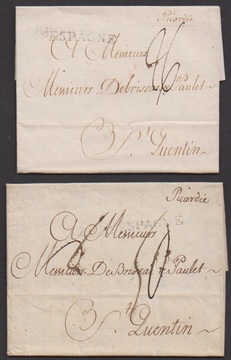 Picardie
ESPAGNE
A Messieurs
Messieurs Debrissac & Paulet
St Quentin
Picardie
A Messieurs
Messieurs De Brissac & Paulet
St Quentin